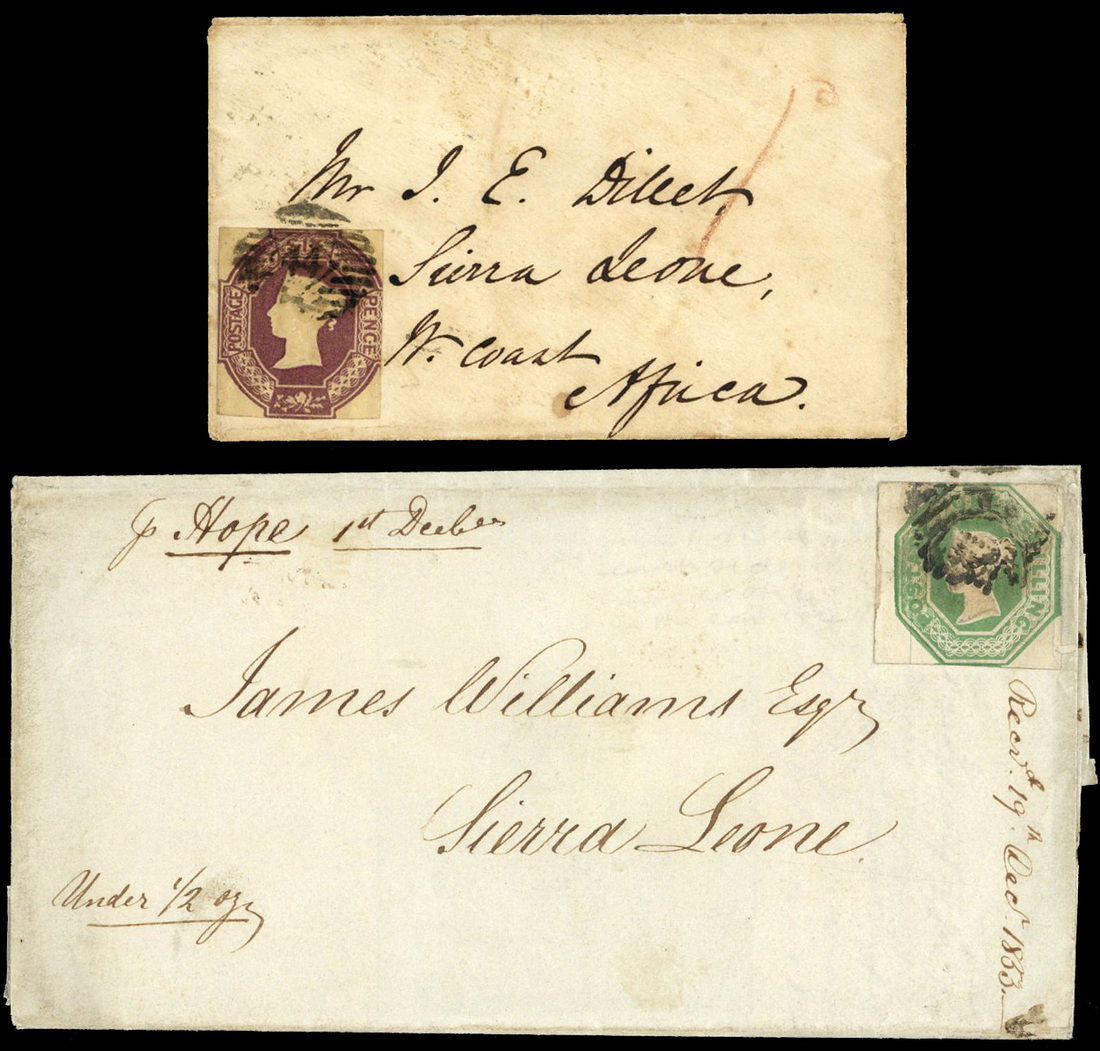 Mr J. E. Dillet,
Sierra Leone,
W. Coast
Africa.
POSTAGE
PENCE
p Hope 1st Decber
James Williams Esqr
Sierra Leone.
Under 1/2 oz
Recvd. 19th Decr. 1853